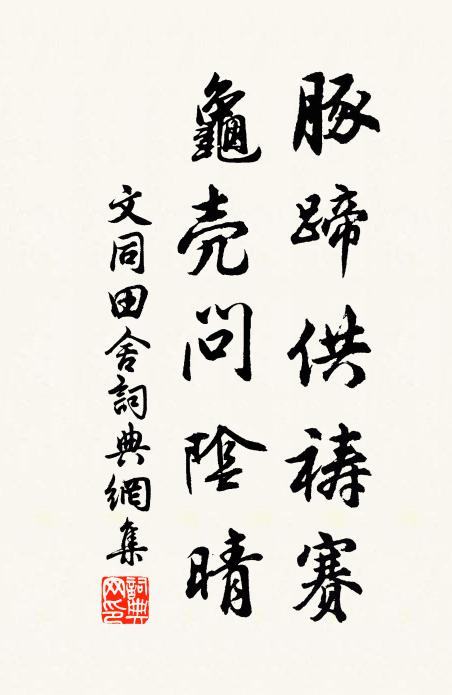 豚蹄供祷賽
龜壳問陰晴
文同田舍詞典網集
詞典网印